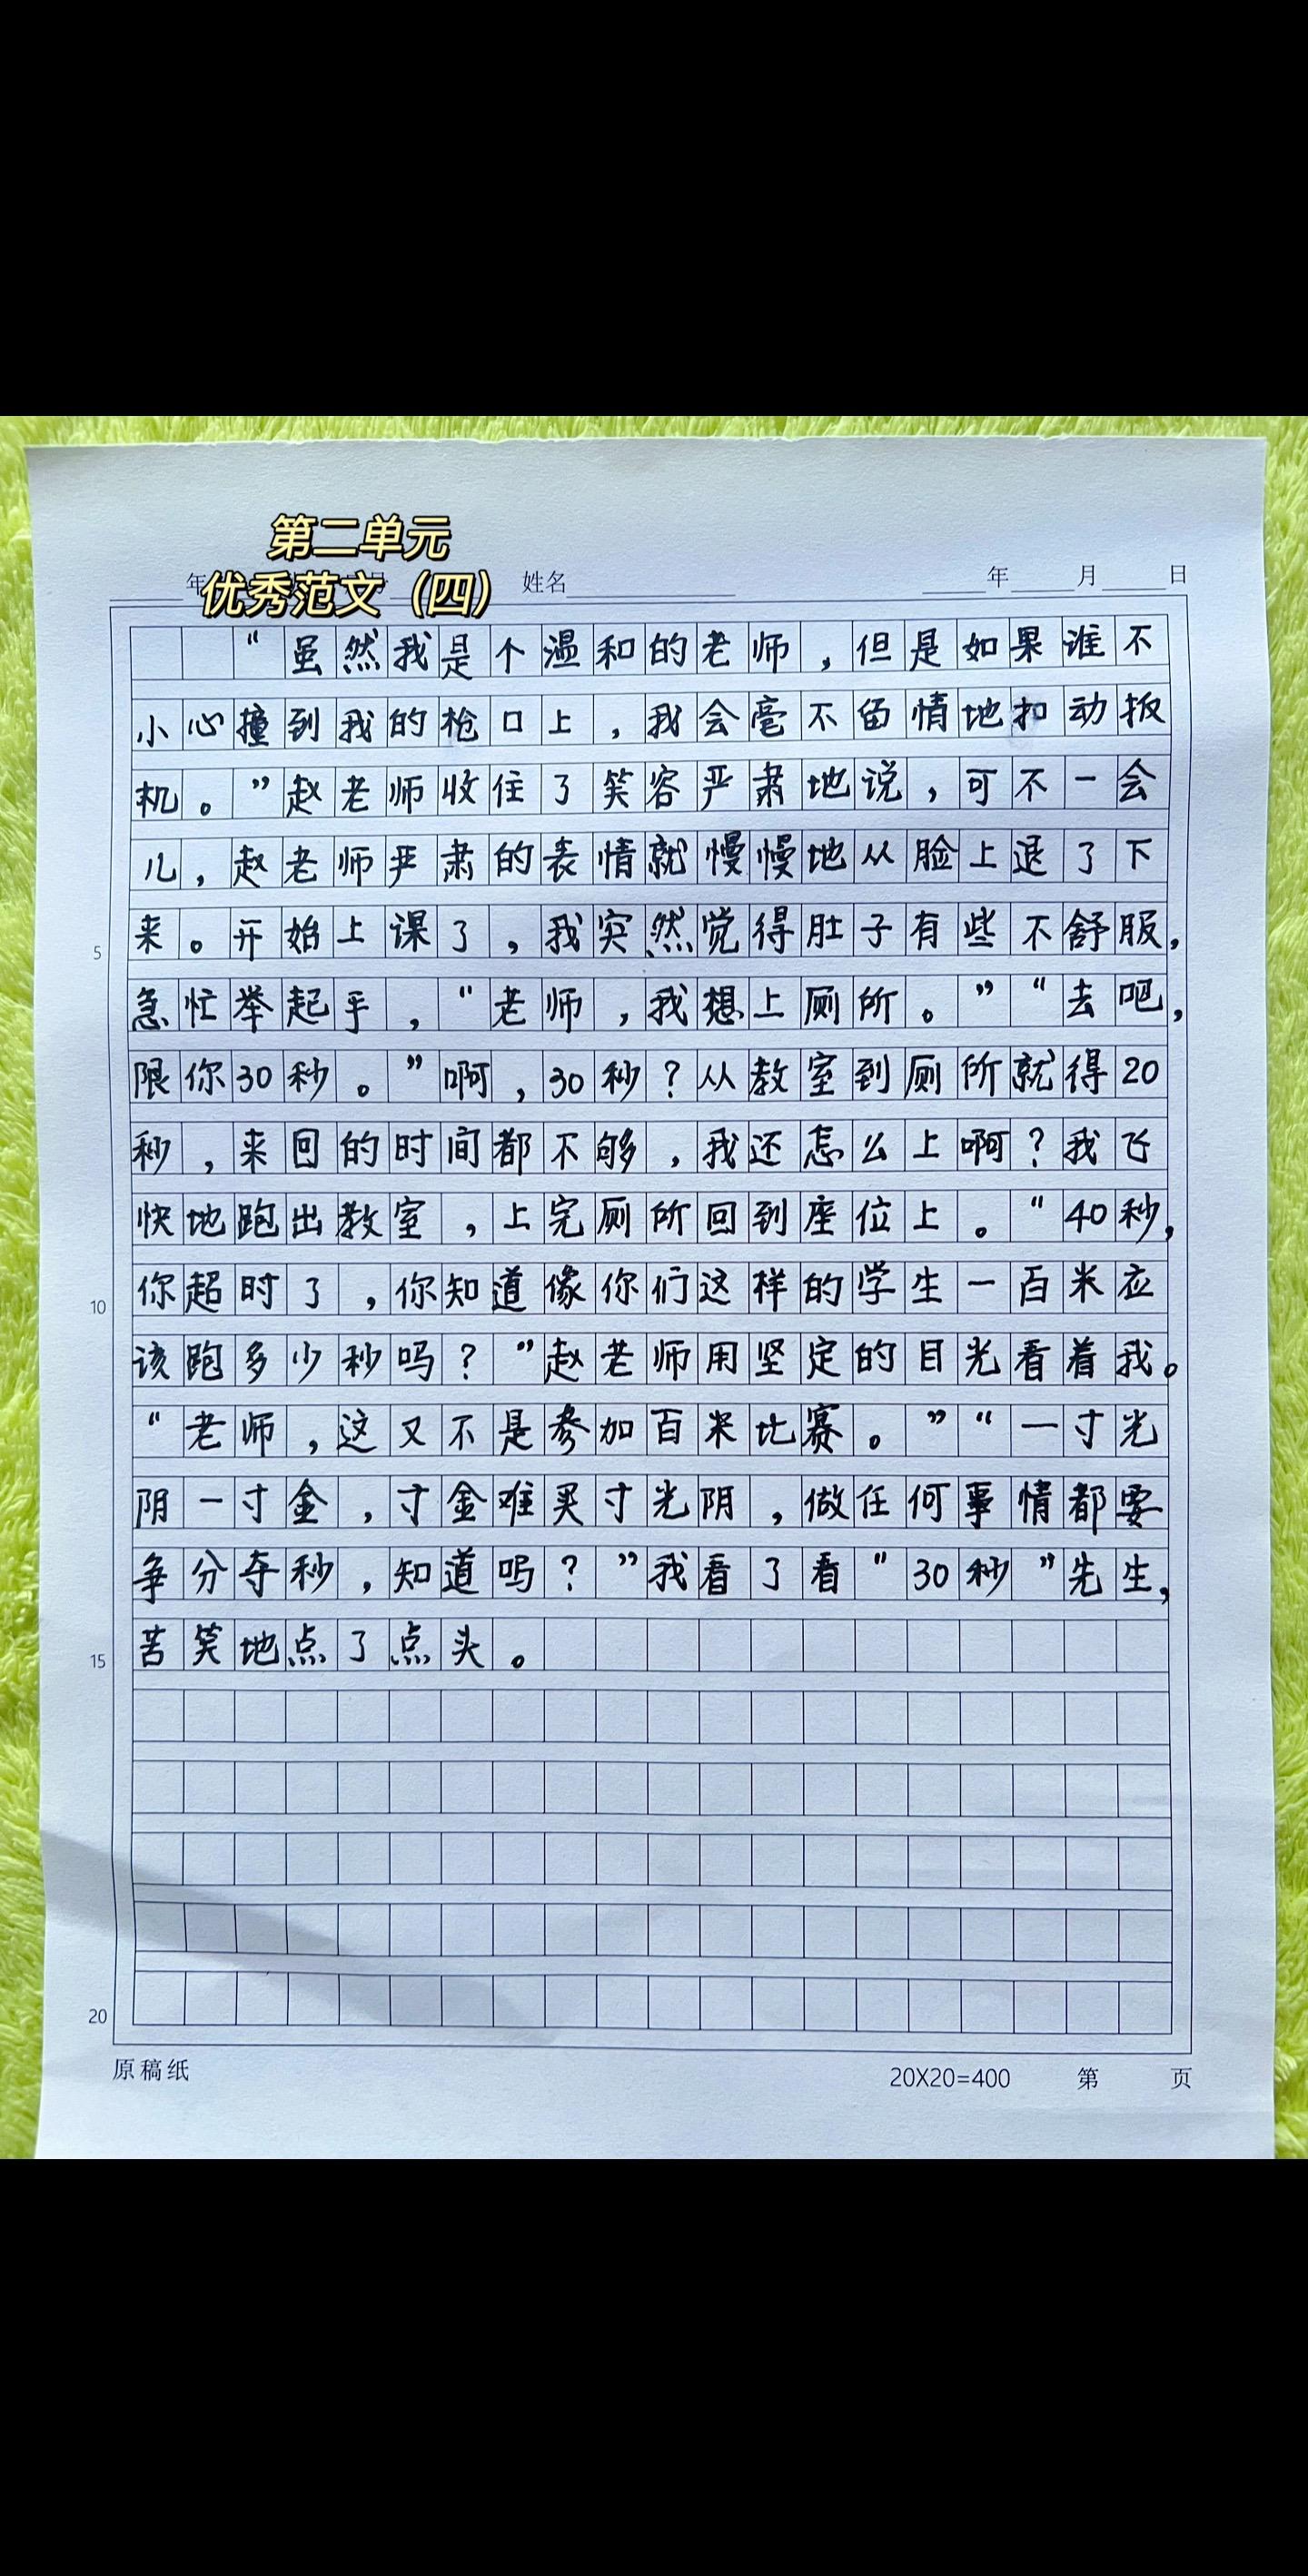 第二单元
优秀范文（四）
年
姓名
年 月 日
“虽然我是个温和的老师，但是如果谁不
小心撞到我的枪口上，我会毫不留情地扣动扳
机。”赵老师收住了笑容严肃地说，可不一会
儿，赵老师严肃的表情就慢慢地从脸上退了下
来。开始上课了，我突然觉得肚子有些不舒服，
5
急忙举起手，“老师，我想上厕所。”“去吧，
限你30秒。”啊，30秒？从教室到厕所就得20
秒，来回的时间都不够，我还怎么上啊？我飞
快地跑出教室，上完厕所回到座位上。“40秒，
你超时了，你知道像你们这样的学生一百米应
10
该跑多少秒吗？”赵老师用坚定的目光看着我。
“老师，这又不是参加百米比赛。”“一寸光
阴一寸金，寸金难买寸光阴，做任何事情都要
争分夺秒，知道吗？”我看了看“30秒”先生，
苦笑地点了点头。
15
20
原稿纸
20X20=400 第 页